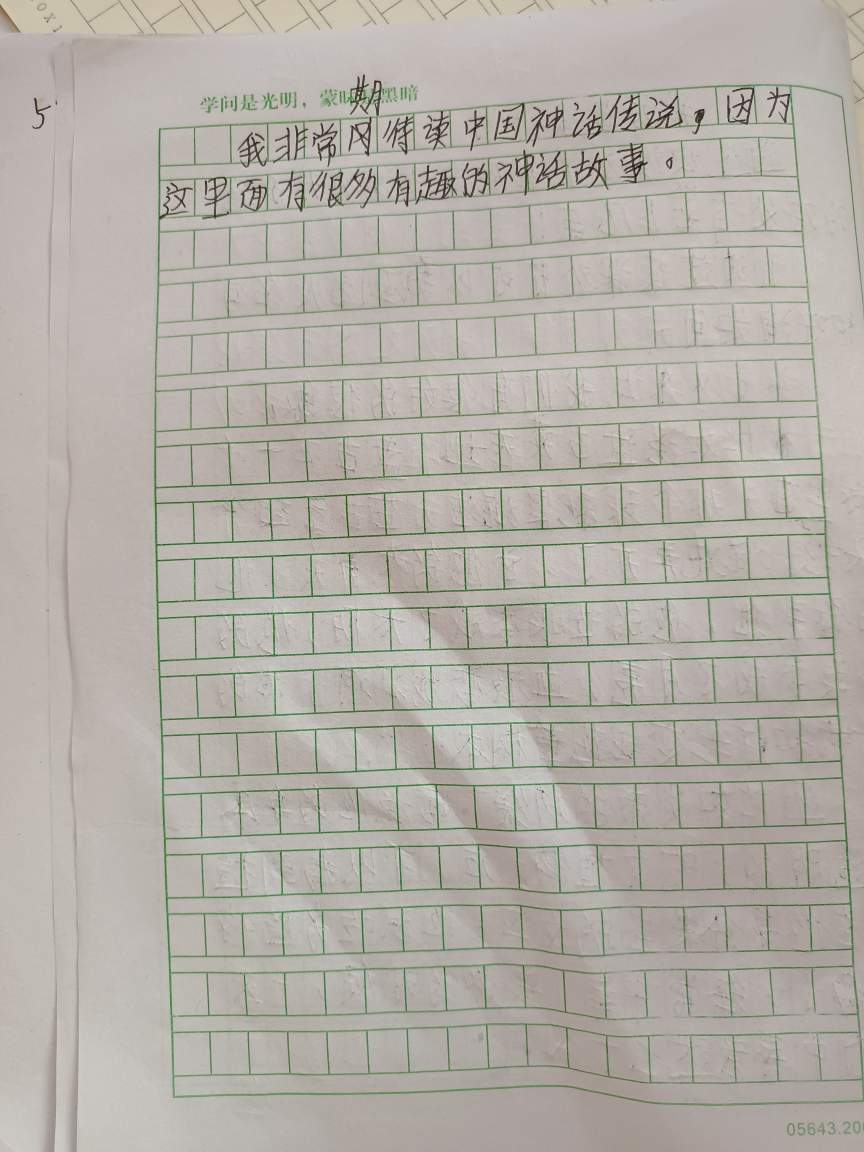 学问是光明，蒙昧是黑暗
5
期
我非常冈待读中国神话传说，因为
这里面有很多有趣的神话故事。
05643.200